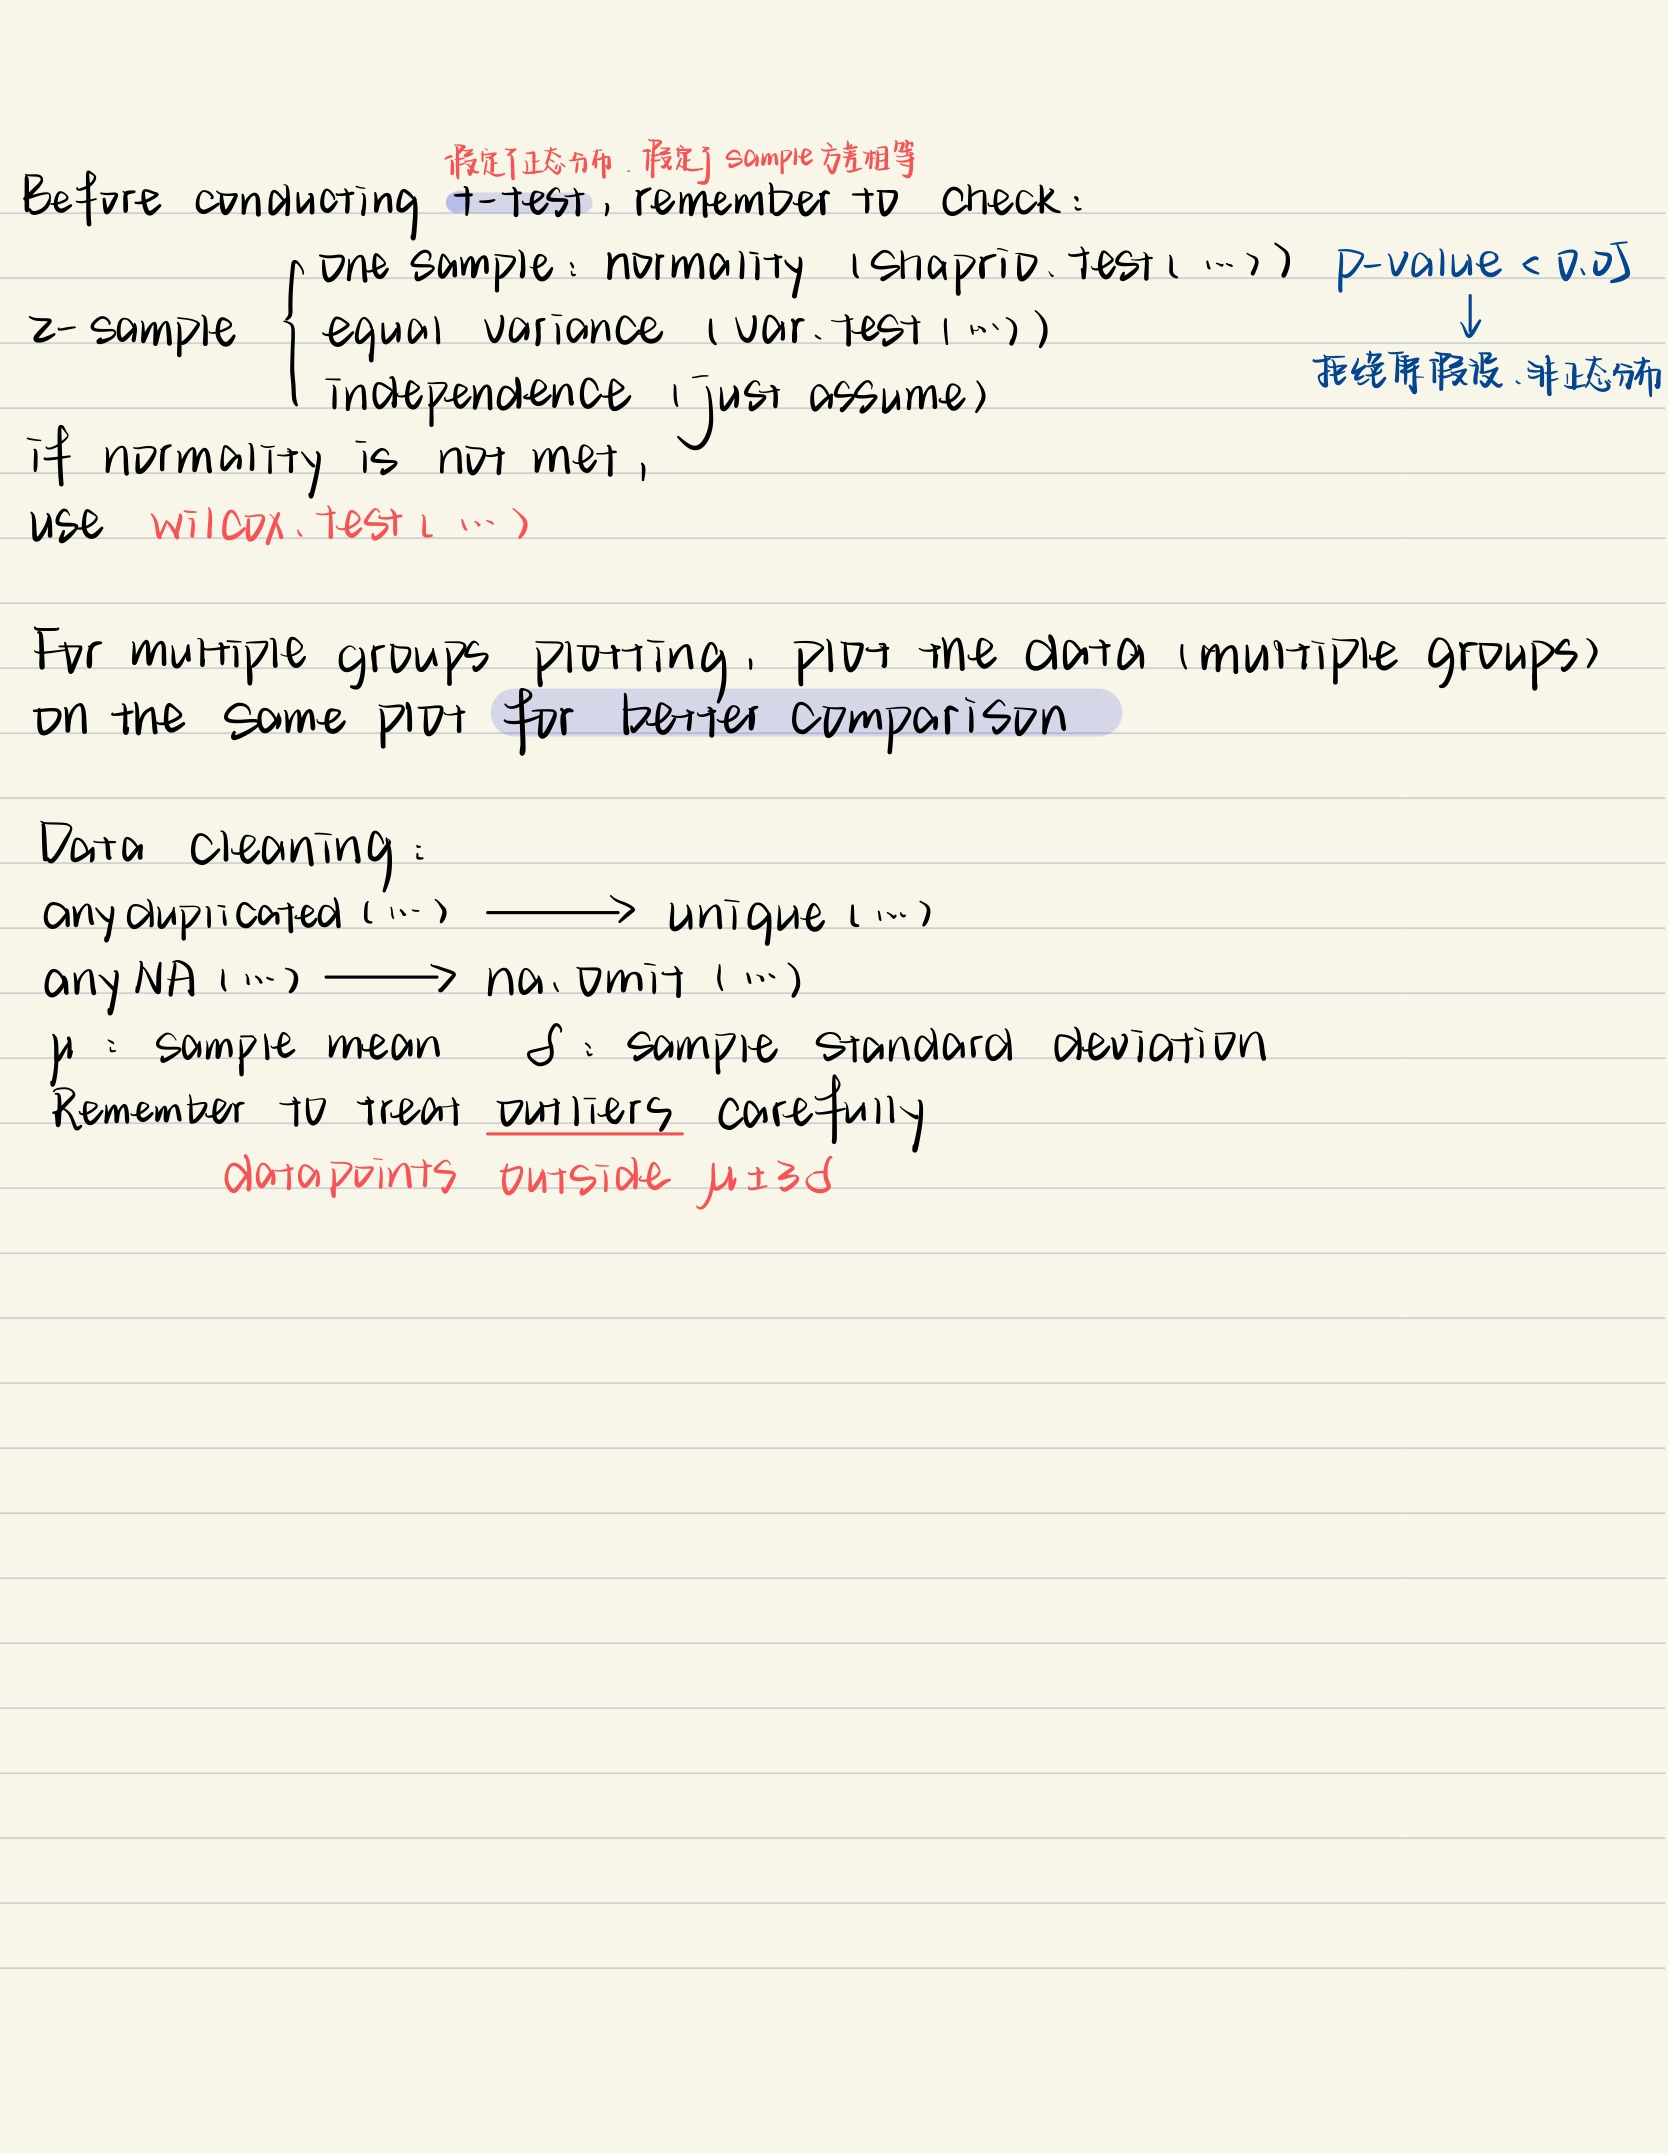 假定了正态分布.假定了sample方差相等
Before conducting t-test, remember to check:
one sample: normality (shaprio.test(...)) p-value < 0.05
↓
2-sample equal variance (var.test(...))
拒绝原假设、非正态分布
independence (just assume)
if normality is not met,
use wilcox.test(...)
For multiple groups plotting, plot the data (multiple groups)
on the same plot for better comparison
Data cleaning:
anyduplicated(...) → unique(...)
anyNA(...) → na.omit(...)
μ: sample mean δ: sample standard deviation
Remember to treat outliers carefully
datapoints outside μ±3δ